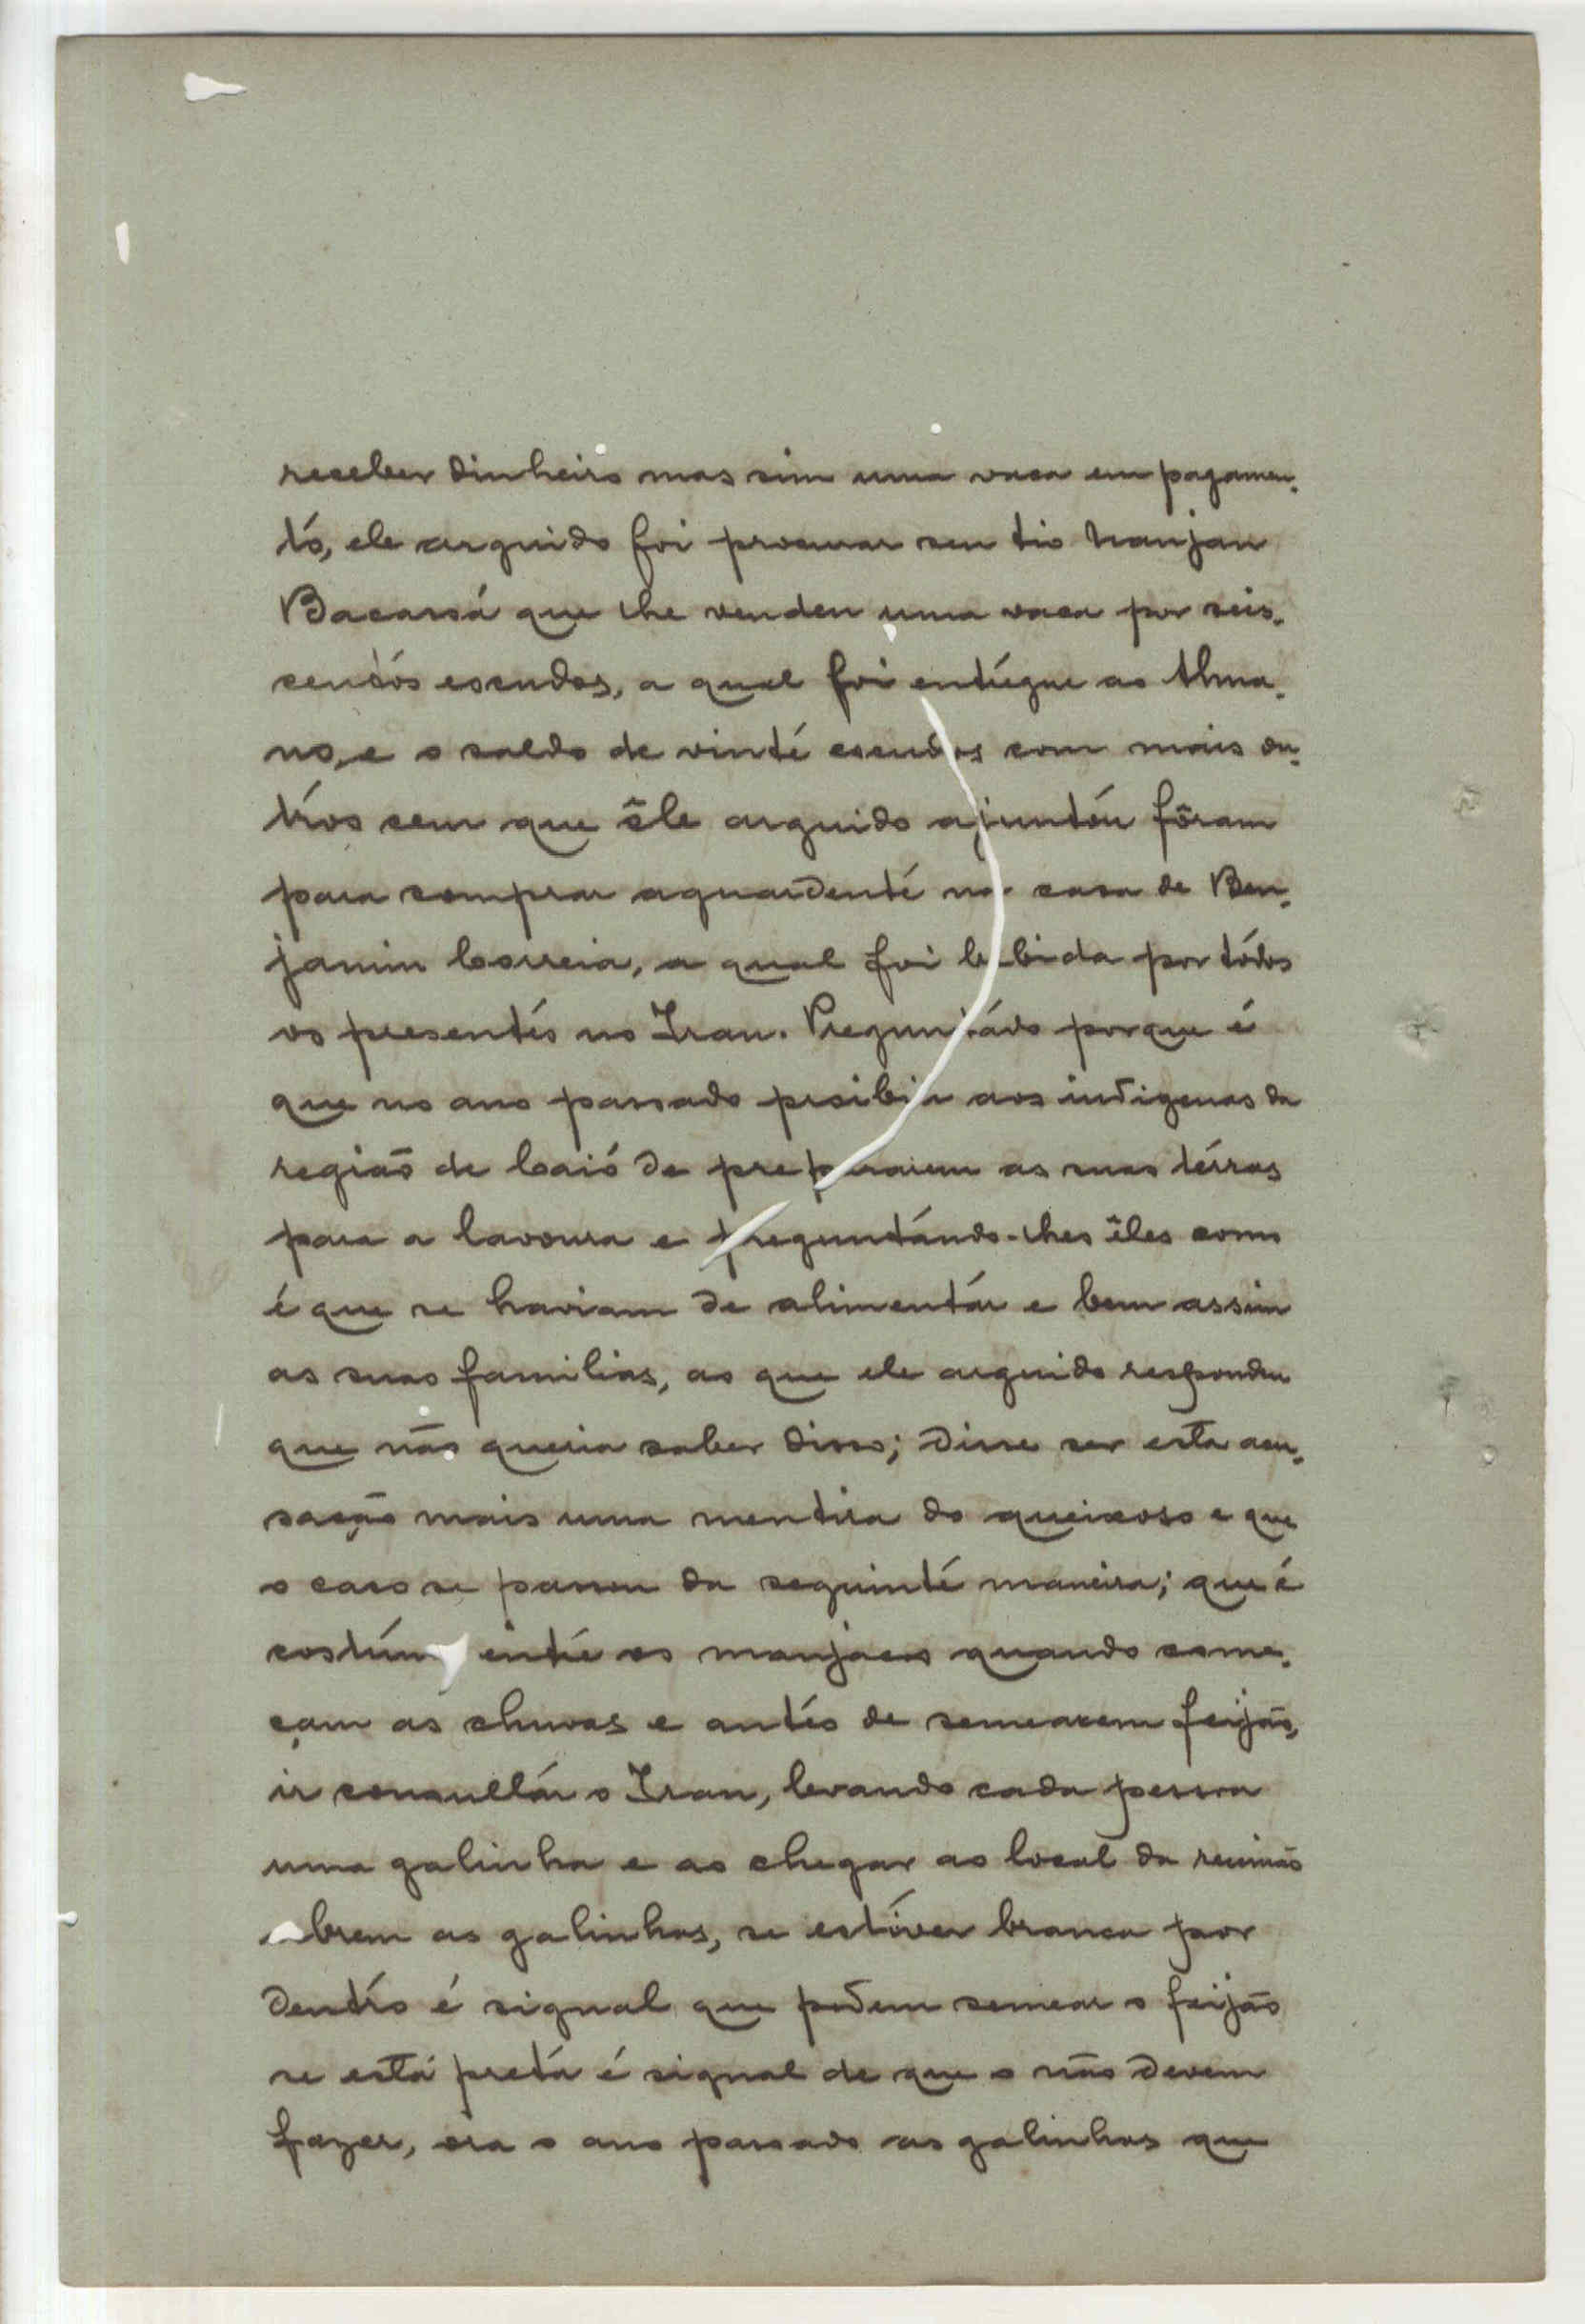 receber dinheiro mas sim uma vaca em pagamen-
to, ele arguido foi procurar seu tio Nanjan
Bacassá que lhe vendeu uma vaca por seis-
centos escudos, a qual foi entregue ao Alma-
no, e o saldo de vinte escudos com mais ou-
tros cem que êle arguido ajuntou fôram
para comprar aguardente na casa de Ben-
jamim Correia, a qual foi bebida por todos
os presentes no Iran. Preguntado porque é
que no ano passado proibiu aos indigenas da
região de Caió de prepararem as suas terras
para a lavoura e preguntando-lhes êles como
é que se haviam de alimentar e bem assim
as suas familias, ao que ele arguido respondeu
que não queria saber disso; disse ser esta acu-
sação mais uma mentira do queixoso e que
o caso se passou da seguinte maneira; que é
costum entre os manjacos quando come-
çam as chuvas e antes de semearem feijão,
ir consultar o Iran, levando cada pessoa
uma galinha e ao chegar ao local da reunião
abrem as galinhas, se estiver branca por
dentro é signal que podem semear o feijão
se está preta é signal de que o não devem
fazer, ora o ano passado as galinhas que